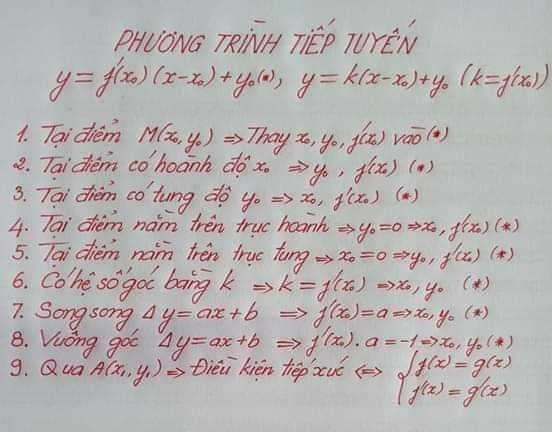 PHƯƠNG TRÌNH TIẾP TUYẾN
y = f'(x₀)(x-x₀)+y₀(*), y = k(x-x₀)+y₀ (k=f'(x₀))
1. Tại điểm M(x₀,y₀) ⇒ Thay x₀, y₀, f'(x₀) vào (*)
2. Tại điểm có hoành độ x₀ ⇒ y₀, f'(x₀) (*)
3. Tại điểm có tung độ y₀ ⇒ x₀, f'(x₀) (*)
4. Tại điểm nằm trên trục hoành ⇒ y₀=0 ⇒ x₀, f'(x₀) (*)
5. Tại điểm nằm trên trục tung ⇒ x₀=0 ⇒ y₀, f'(x₀) (*)
6. Có hệ số góc bằng k ⇒ k = f'(x₀) ⇒ x₀, y₀ (*)
7. Song song Δ y = ax+b ⇒ f'(x₀)=a ⇒ x₀, y₀ (*)
8. Vuông góc Δ y = ax+b ⇒ f'(x₀). a = -1 ⇒ x₀, y₀ (*)
9. Qua A(x₁, y₁) ⇒ Điều kiện tiếp xúc ⇔ { f(x) = g(x)
f'(x) = g'(x)